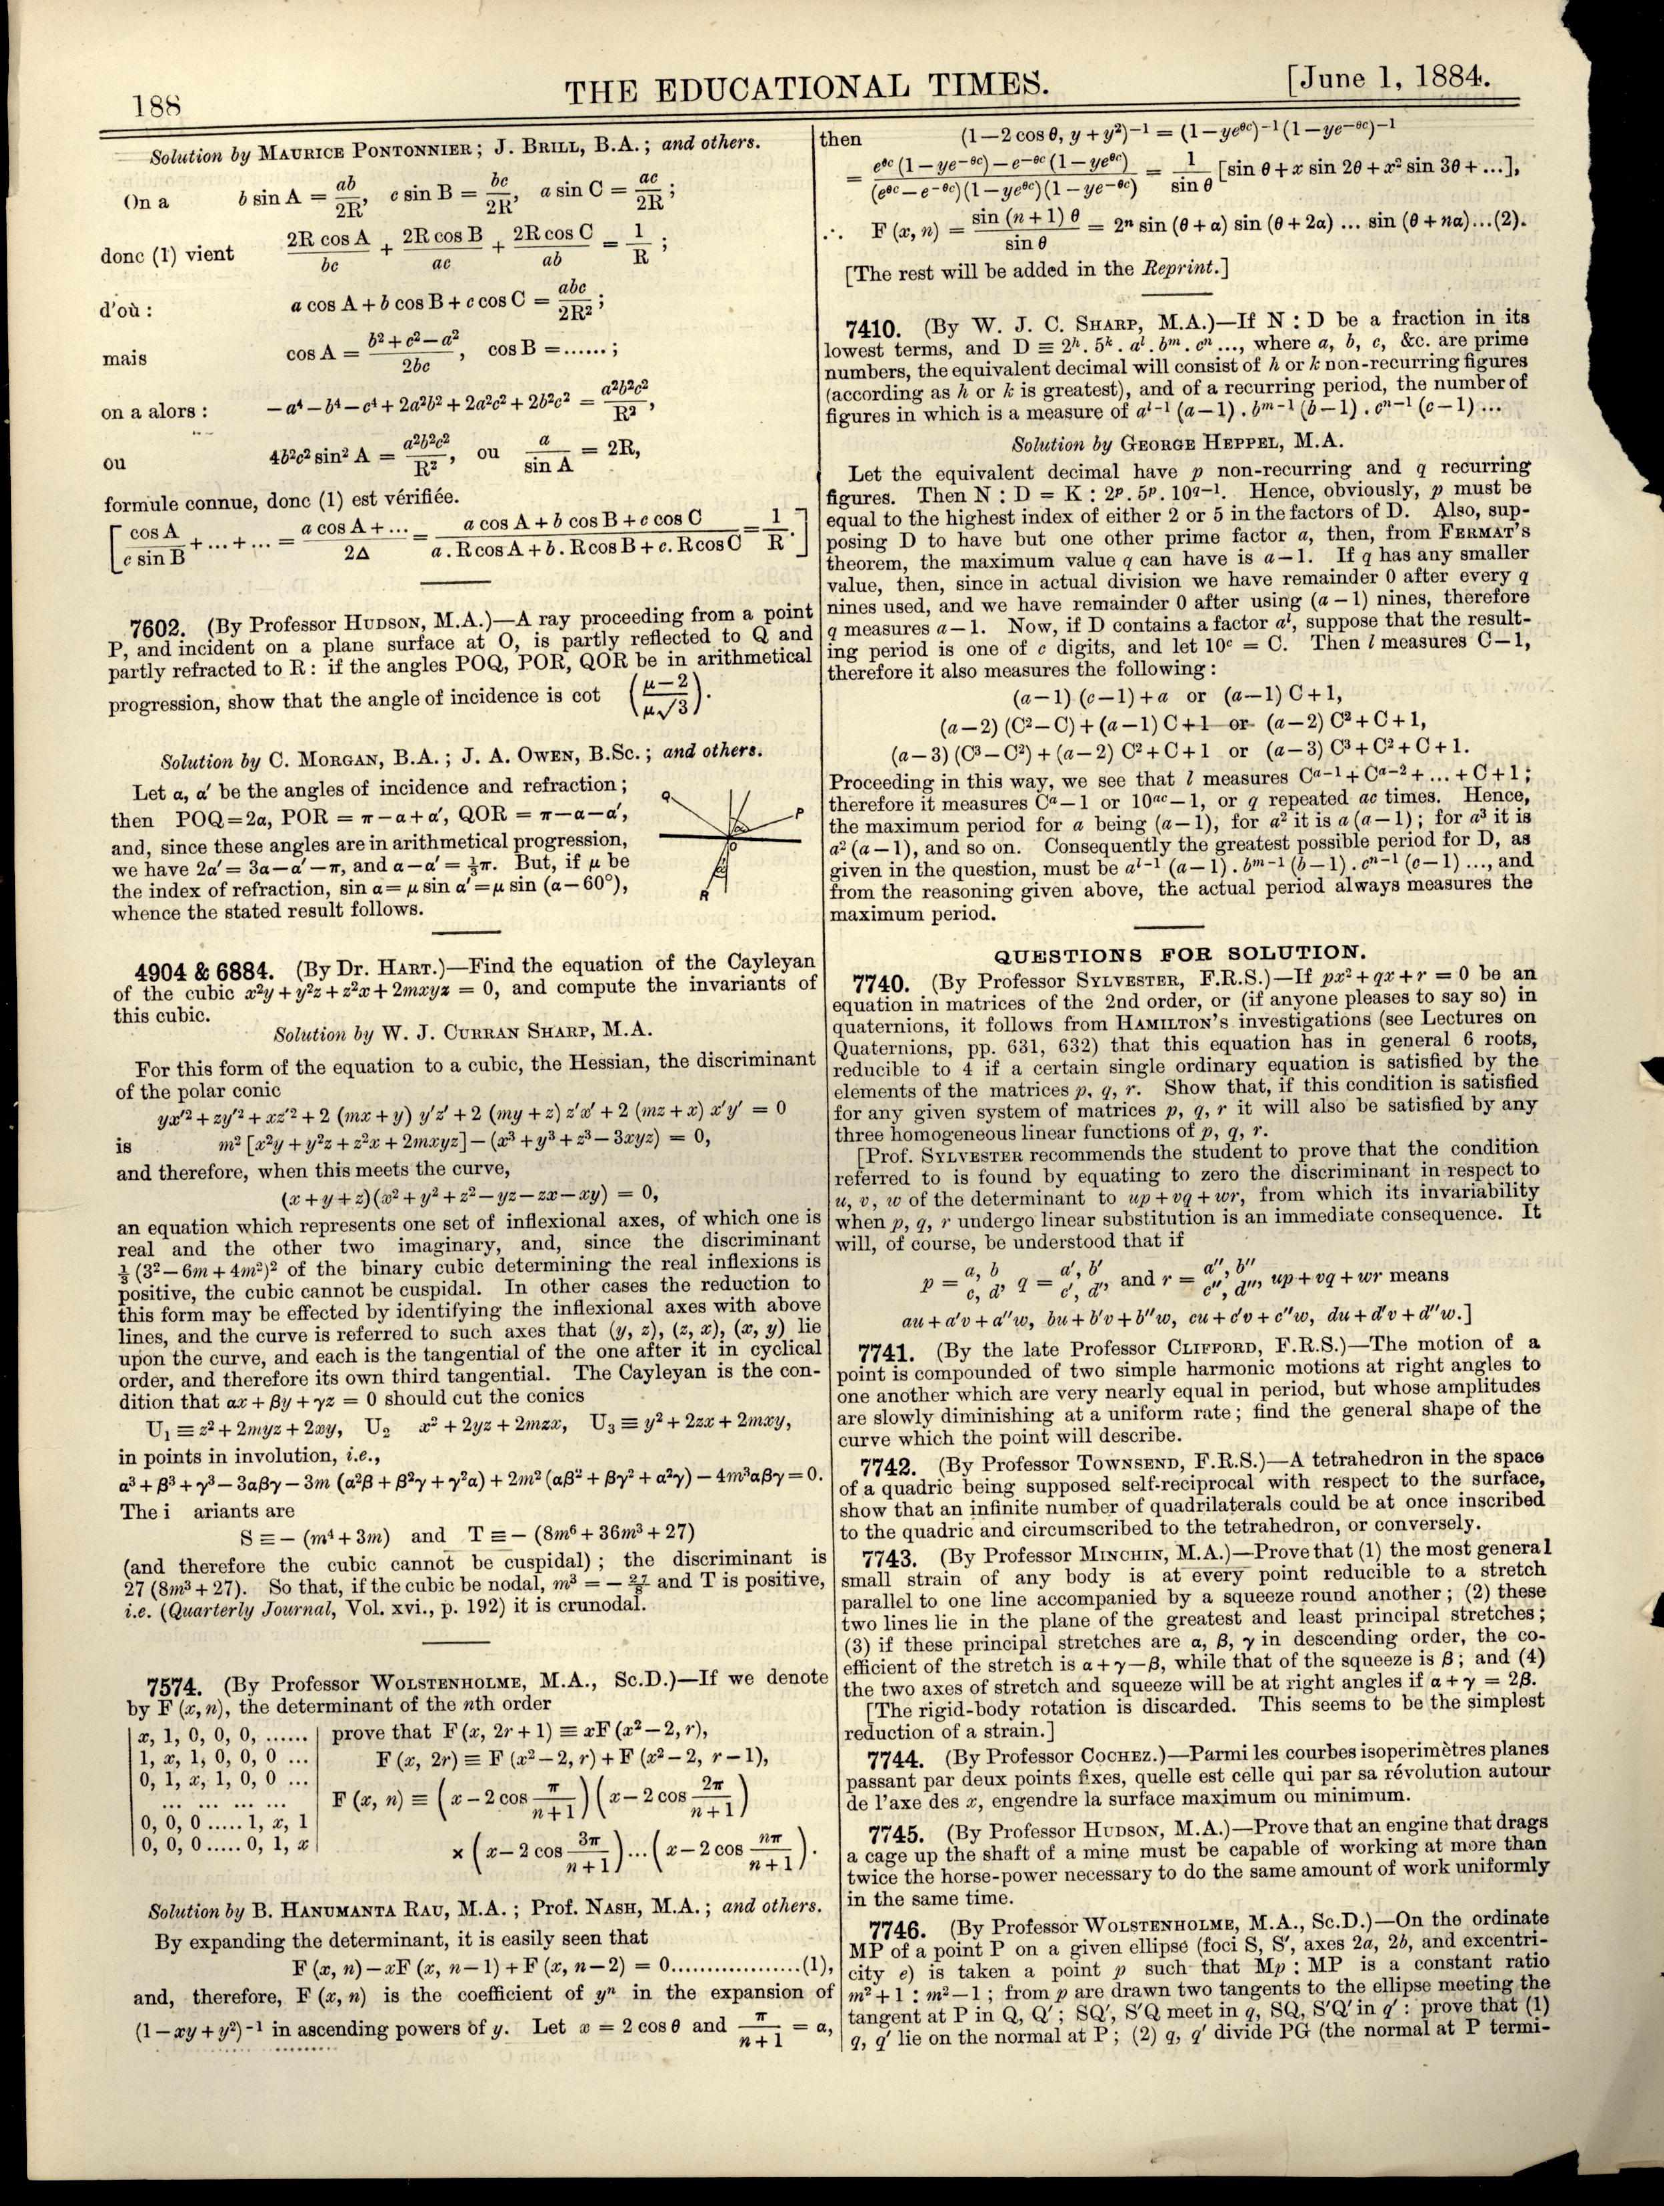 188
THE EDUCATIONAL TIMES.
[June 1, 1884.
Solution by MAURICE PONTONNIER; J. BRILL, B.A.; and others.
On a b sin A = ab/2R, c sin B = bc/2R, a sin C = ac/2R ;
donc (1) vient 2R cos A/bc + 2R cos B/ac + 2R cos C/ab = 1/R ;
d'où : a cos A + b cos B + c cos C = abc/2R² ;
mais cos A = (b² + c² – a²)/2bc, cos B = ...... ;
on a alors : – a⁴ – b⁴ – c⁴ + 2a²b² + 2a²c² + 2b²c² = a²b²c²/R²,
ou 4b²c² sin² A = a²b²c²/R², ou a/sin A = 2R,
formule connue, donc (1) est vérifiée.
[cos A/c sin B + ... + ... = a cos A + .../2Δ = (a cos A + b cos B + c cos C)/(a . R cos A + b . R cos B + c. R cos C) = 1/R.]
7602. (By Professor HUDSON, M.A.)—A ray proceeding from a point
P, and incident on a plane surface at O, is partly reflected to Q and
partly refracted to R: if the angles POQ, POR, QOR be in arithmetical
progression, show that the angle of incidence is cot ((μ – 2)/(μ√3)).
Solution by C. MORGAN, B.A.; J. A. OWEN, B.Sc.; and others.
Let α, α′ be the angles of incidence and refraction;
then POQ = 2α, POR = π – α + α′, QOR = π – α – α′,
and, since these angles are in arithmetical progression,
we have 2α′ = 3α – α′ – π, and α – α′ = ⅓π. But, if μ be
the index of refraction, sin α = μ sin α′ = μ sin (α – 60°),
whence the stated result follows.
Q
P
O
R
4904 & 6884. (By Dr. HART.)—Find the equation of the Cayleyan
of the cubic x²y + y²z + z²x + 2mxyz = 0, and compute the invariants of
this cubic.
Solution by W. J. CURRAN SHARP, M.A.
For this form of the equation to a cubic, the Hessian, the discriminant
of the polar conic
yx′² + zy′² + xz′² + 2 (mx + y) y′z′ + 2 (my + z) z′x′ + 2 (mz + x) x′y′ = 0
is m² [x²y + y²z + z²x + 2mxyz] – (x³ + y³ + z³ – 3xyz) = 0,
and therefore, when this meets the curve,
(x + y + z) (x² + y² + z² – yz – zx – xy) = 0,
an equation which represents one set of inflexional axes, of which one is
real and the other two imaginary, and, since the discriminant
⅓ (3² – 6m + 4m²)² of the binary cubic determining the real inflexions is
positive, the cubic cannot be cuspidal. In other cases the reduction to
this form may be effected by identifying the inflexional axes with above
lines, and the curve is referred to such axes that (y, z), (z, x), (x, y) lie
upon the curve, and each is the tangential of the one after it in cyclical
order, and therefore its own third tangential. The Cayleyan is the con-
dition that αx + βy + γz = 0 should cut the conics
U₁ ≡ z² + 2myz + 2xy, U₂ x² + 2yz + 2mzx, U₃ ≡ y² + 2zx + 2mxy,
in points in involution, i.e.,
α³ + β³ + γ³ – 3αβγ – 3m (α²β + β²γ + γ²α) + 2m² (αβ² + βγ² + α²γ) – 4m³αβγ = 0.
The i ariants are
S ≡ – (m⁴ + 3m) and T ≡ – (8m⁶ + 36m³ + 27)
(and therefore the cubic cannot be cuspidal); the discriminant is
27 (8m³ + 27). So that, if the cubic be nodal, m³ = – 27/8 and T is positive,
i.e. (Quarterly Journal, Vol. xvi., p. 192) it is crunodal.
7574. (By Professor WOLSTENHOLME, M.A., Sc.D.)—If we denote
by F (x, n), the determinant of the nth order
| x, 1, 0, 0, 0, ...... |
| 1, x, 1, 0, 0, 0 ... |
| 0, 1, x, 1, 0, 0 ... |
... ... ... ...
| 0, 0, 0 ..... 1, x, 1 |
| 0, 0, 0 ..... 0, 1, x |
prove that F (x, 2r + 1) ≡ xF (x² – 2, r),
F (x, 2r) ≡ F (x² – 2, r) + F (x² – 2, r – 1),
F (x, n) ≡ (x – 2 cos π/(n + 1)) (x – 2 cos 2π/(n + 1))
× (x – 2 cos 3π/(n + 1)) ... (x – 2 cos nπ/(n + 1)).
Solution by B. HANUMANTA RAU, M.A.; Prof. NASH, M.A.; and others.
By expanding the determinant, it is easily seen that
F (x, n) – xF (x, n – 1) + F (x, n – 2) = 0..................(1),
and, therefore, F (x, n) is the coefficient of yⁿ in the expansion of
(1 – xy + y²)⁻¹ in ascending powers of y. Let x = 2 cos θ and π/(n + 1) = α,
then (1 – 2 cos θ, y + y²)⁻¹ = (1 – ye^θc)⁻¹ (1 – ye^–θc)⁻¹
= (e^θc (1 – ye^–θc) – e^–θc (1 – ye^θc))/((e^θc – e^–θc) (1 – ye^θc) (1 – ye^–θc)) = 1/sin θ [sin θ + x sin 2θ + x² sin 3θ + ...],
∴ F (x, n) = sin (n + 1) θ/sin θ = 2ⁿ sin (θ + α) sin (θ + 2α) ... sin (θ + nα)...(2).
[The rest will be added in the Reprint.]
7410. (By W. J. C. SHARP, M.A.)—If N : D be a fraction in its
lowest terms, and D ≡ 2ʰ . 5ᵏ . aˡ . bᵐ . cⁿ ..., where a, b, c, &c. are prime
numbers, the equivalent decimal will consist of h or k non-recurring figures
(according as h or k is greatest), and of a recurring period, the number of
figures in which is a measure of aˡ⁻¹ (a – 1) . bᵐ⁻¹ (b – 1) . cⁿ⁻¹ (c – 1) ...
Solution by GEORGE HEPPEL, M.A.
Let the equivalent decimal have p non-recurring and q recurring
figures. Then N : D = K : 2ᵖ . 5ᵖ . 10^q–1. Hence, obviously, p must be
equal to the highest index of either 2 or 5 in the factors of D. Also, sup-
posing D to have but one other prime factor a, then, from FERMAT'S
theorem, the maximum value q can have is a – 1. If q has any smaller
value, then, since in actual division we have remainder 0 after every q
nines used, and we have remainder 0 after using (a – 1) nines, therefore
q measures a – 1. Now, if D contains a factor aˡ, suppose that the result-
ing period is one of c digits, and let 10ᶜ = C. Then l measures C – 1,
therefore it also measures the following:
(a – 1) (c – 1) + a or (a – 1) C + 1,
(a – 2) (C² – C) + (a – 1) C + 1 or (a – 2) C² + C + 1,
(a – 3) (C³ – C²) + (a – 2) C² + C + 1 or (a – 3) C³ + C² + C + 1.
Proceeding in this way, we see that l measures Cᵃ⁻¹ + Cᵃ⁻² + ... + C + 1;
therefore it measures Cᵃ – 1 or 10ᵃᶜ – 1, or q repeated ac times. Hence,
the maximum period for a being (a – 1), for a² it is a (a – 1); for a³ it is
a² (a – 1), and so on. Consequently the greatest possible period for D, as
given in the question, must be aˡ⁻¹ (a – 1) . bᵐ⁻¹ (b – 1) . cⁿ⁻¹ (c – 1) ..., and
from the reasoning given above, the actual period always measures the
maximum period.
QUESTIONS FOR SOLUTION.
7740. (By Professor SYLVESTER, F.R.S.)—If px² + qx + r = 0 be an
equation in matrices of the 2nd order, or (if anyone pleases to say so) in
quaternions, it follows from HAMILTON'S investigations (see Lectures on
Quaternions, pp. 631, 632) that this equation has in general 6 roots,
reducible to 4 if a certain single ordinary equation is satisfied by the
elements of the matrices p, q, r. Show that, if this condition is satisfied
for any given system of matrices p, q, r it will also be satisfied by any
three homogeneous linear functions of p, q, r.
[Prof. SYLVESTER recommends the student to prove that the condition
referred to is found by equating to zero the discriminant in respect to
u, v, w of the determinant to up + vq + wr, from which its invariability
when p, q, r undergo linear substitution is an immediate consequence. It
will, of course, be understood that if
p = a, b / c, d, q = a′, b′ / c′, d′, and r = a″, b″ / c″, d″, up + vq + wr means
au + a′v + a″w, bu + b′v + b″w, cu + c′v + c″w, du + d′v + d″w.]
7741. (By the late Professor CLIFFORD, F.R.S.)—The motion of a
point is compounded of two simple harmonic motions at right angles to
one another which are very nearly equal in period, but whose amplitudes
are slowly diminishing at a uniform rate; find the general shape of the
curve which the point will describe.
7742. (By Professor TOWNSEND, F.R.S.)—A tetrahedron in the space
of a quadric being supposed self-reciprocal with respect to the surface,
show that an infinite number of quadrilaterals could be at once inscribed
to the quadric and circumscribed to the tetrahedron, or conversely.
7743. (By Professor MINCHIN, M.A.)—Prove that (1) the most general
small strain of any body is at every point reducible to a stretch
parallel to one line accompanied by a squeeze round another; (2) these
two lines lie in the plane of the greatest and least principal stretches;
(3) if these principal stretches are α, β, γ in descending order, the co-
efficient of the stretch is α + γ – β, while that of the squeeze is β; and (4)
the two axes of stretch and squeeze will be at right angles if α + γ = 2β.
[The rigid-body rotation is discarded. This seems to be the simplest
reduction of a strain.]
7744. (By Professor COCHEZ.)—Parmi les courbes isoperimètres planes
passant par deux points fixes, quelle est celle qui par sa révolution autour
de l'axe des x, engendre la surface maximum ou minimum.
7745. (By Professor HUDSON, M.A.)—Prove that an engine that drags
a cage up the shaft of a mine must be capable of working at more than
twice the horse-power necessary to do the same amount of work uniformly
in the same time.
7746. (By Professor WOLSTENHOLME, M.A., Sc.D.)—On the ordinate
MP of a point P on a given ellipse (foci S, S′, axes 2a, 2b, and excentri-
city e) is taken a point p such that Mp : MP is a constant ratio
m² + 1 : m² – 1; from p are drawn two tangents to the ellipse meeting the
tangent at P in Q, Q′; SQ′, S′Q meet in q, SQ, S′Q′ in q′: prove that (1)
q, q′ lie on the normal at P; (2) q, q′ divide PG (the normal at P termi-